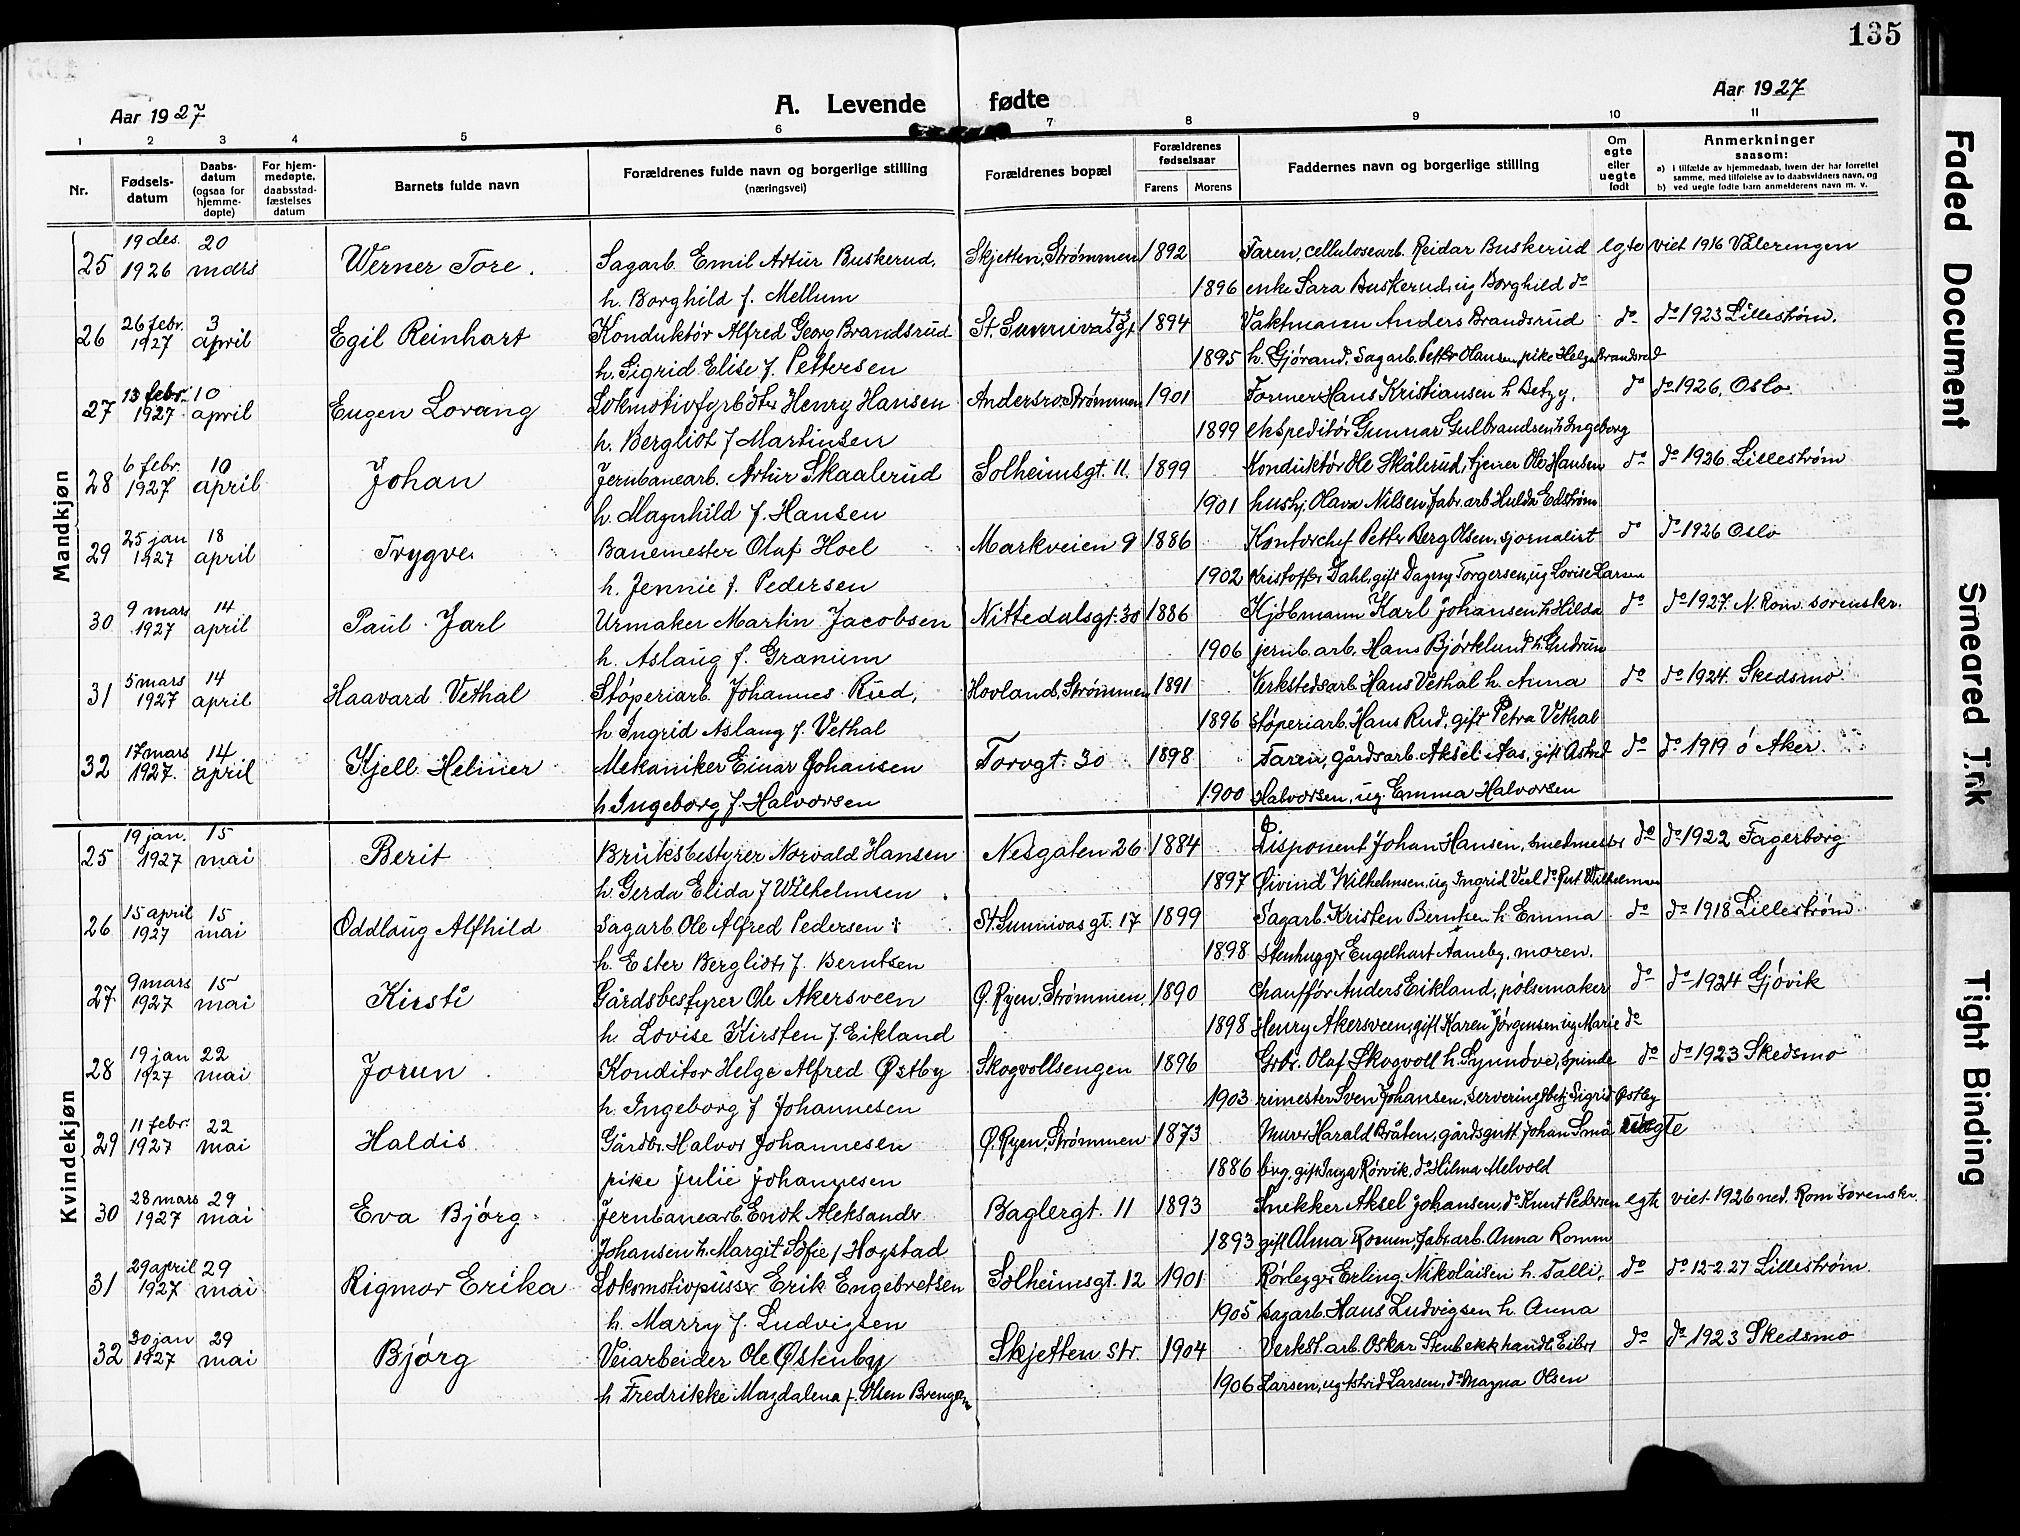 135
Aar 1927
A. Levende fødte
Aar 1927
1 2 3 4 5 6 7 8 9 10 11
Nr.
Fødsels-
datum
Daabs-
datum
(ogsaa for
hjemme-
døpte)
For hjem-
medøpte,
daabsstad-
fæstelses
datum
Barnets fulde navn
Forældrenes fulde navn og borgerlige stilling
(næringsvei)
Forældrenes bopæl
Forældrenes
fødselsaar
Farens Morens
Faddernes navn og borgerlige stilling
Om
egte
eller
uegte
født
Anmerkninger
saasom:
a) i tilfælde av hjemmedaab, hvem der har forrettet
samme, med tilføielse av to daabsvidners navn, og
b) ved uegte fødte barn anmelderens navn m. v.
Mandkjøn
25 19 des. 1926 20 mars Werner Tore. Sagarb. Emil Artur Buskerud, Skjetten, Strømmen 1892 Faren, cellulosearb. Reidar Buskerud egte viet 1916 Vålerengen
h. Borghild f. Mellum 1896 enke Sara Buskerud, ug Borghild do
26 26 febr. 1927 3 april Egil Reinhart Konduktør Alfred Georg Brandsrud St. Sunnivas gt 1894 Vaktmann Anders Brandsrud do do 1923 Lillestrøm.
h. Sigrid Elise f. Pettersen 1895 h. Gjørand, Sagarb. Petter Olausen, pike Helga Brandsrud
27 13 febr. 1927 10 april Eugen Lovang Lokmotivfyrbøter Henry Hansen Andersro Strømmen 1901 Former Hans Kristiansen h Betzy, do do 1926. Oslo.
h. Bergliot f Martinsen 1899 ekspeditør Gunnar Gulbrandsen h Ingeborg
28 6 febr. 1927 10 april Johan Jernbanearb. Artur Skaalerud Solheimsgt. 11. 1899 Konduktør Ole Skålerud, tjener Ole Hansen do do 1926 Lillestrøm
h. Magnhild f. Hansen 1901 hushj. Olava Nilsen, fabr. arb Hulda Edstrøm
29 25 jan 1927 18 april Trygve Banemester Olaf Hoel Markveien 9 1886 Kontorchef Petter Berg Olsen, sjornalist do do 1926 Oslo
h. Jennie f. Pedersen 1902 Kristoffer Dahl, gift Dagny Torgersen, ug Lovise Larsen
30 9 mars 1927 14 april Paul Jarl Urmaker Martin Jacobsen Nittedalsgt. 30 1886 Kjøbmann Karl Johansen h Hilda do do 1927. N. Rom. sorenskr.
h. Aslaug f. Granum 1906 jernb. arb. Hans Bjørklund h. Gudrun
31 5 mars 1927 14 april Haavard Vethal Støperiarb. Johannes Rud, Hovland, Strømmen 1891 Verkstedsarb. Hans Vethal h. Anna do do 1924. Skedsmo
h Ingrid Aslaug f. Vethal 1896 støperiarb. Hans Rud, gift Petra Vethal
32 17 mars 1927. 14 april Kjell Helmer Mekaniker Einar Johansen Torvgt. 30 1898 Faren, gårdsarb. Aksel Aas, gift Astrid do do 1919 Ø Aker.
h Ingeborg f. Halvorsen 1900 Halvorsen, ug. Emma Halvorsen
Kvindekjøn
25 19 jan. 1927 15 mai Berit Bruksbestyrer Norvald Hansen Nesgaten 26 1884 Disponent Johan Hansen, smedmester do do 1922 Fagerborg
h Gerda Elida f Wilhelmsen 1897 Øivind Wilhelmsen, ug Ingrid Veel do Rut Wilhelmsen
26 15 april 1927 15 mai Oddlaug Alfhild Sagarb. Ole Alfred Pedersen St. Sunnivas gt. 17 1899 Sagarb. Kristen Berntsen h. Emma do do 1918 Lillestrøm.
h. Ester Bergliot f. Berntsen 1898 Stenhugger Engelhart Aaneby, moren.
27 9 mars 1927 15 mai Kirsti Gårdsbestyrer Ole Akersveen Ø. Ryen, Strømmen. 1890 Chauffør Anders Eikland, pølsemaker do do 1924 Gjøvik
h Lovise Kirsten f. Eikland 1898 Henry Akersveen, gift Karen Jørgensen, ug Marie do
28 19 jan 1927 22 mai Jorun Konditor Helge Alfred Østby Skogvollsengen 1896 Grbr. Olaf Skogvoll h. Synnøve, spinde do do 1923 Skedsmo
h. Ingeborg f Johannesen 1903 rimester Sven Johansen, serveringsbetj. Sigrid Østby
29 11 febr. 1927 22 mai Haldis Gårdbr. Halvor Johannesen Ø. Ryen, Strømmen 1873 Murer Harald Bråten, gårdsgutt Johan Små uegte
pike Julie Johannesen 1886 brg. gift Inga Rørvik, do Hilma Melvold
30 28 mars 1927 29 mai Eva Bjørg Jernbanearb. Enok Aleksander Baglergt. 11 1893 Snekker Aksel Johansen, do Knut Pedersen egte viet 1926 ned. Rom sorenskr.
Johansen h. Margit Sofie f Hogstad 1893 gift Alma Romm, fabr. arb. Anna Romm
31 29 april 1927 29 mai Rigmor Erika Lokomotivpusser Erik Engebretsen Solheimsgt. 12 1901 Rørlegger Erling Nikolaisen h. Falli, do do 12-2.27 Lillestrøm
h. Marry f. Ludvigsen 1905 sagarb. Hans Ludvigsen h. Anna
32 30 jan 1927 29 mai Bjørg Veiarbeider Ole Østenby Skjetten Str. 1904 Verkst. arb. Oskar Stenbekk handl. do do 1923 Skedsmo
h Fredrikke Magdalena f. Olsen Brengen 1906 Larsen, ug Astrid Larsen, do Magna Olsen
Faded Document
Smeared Ink
Tight Binding